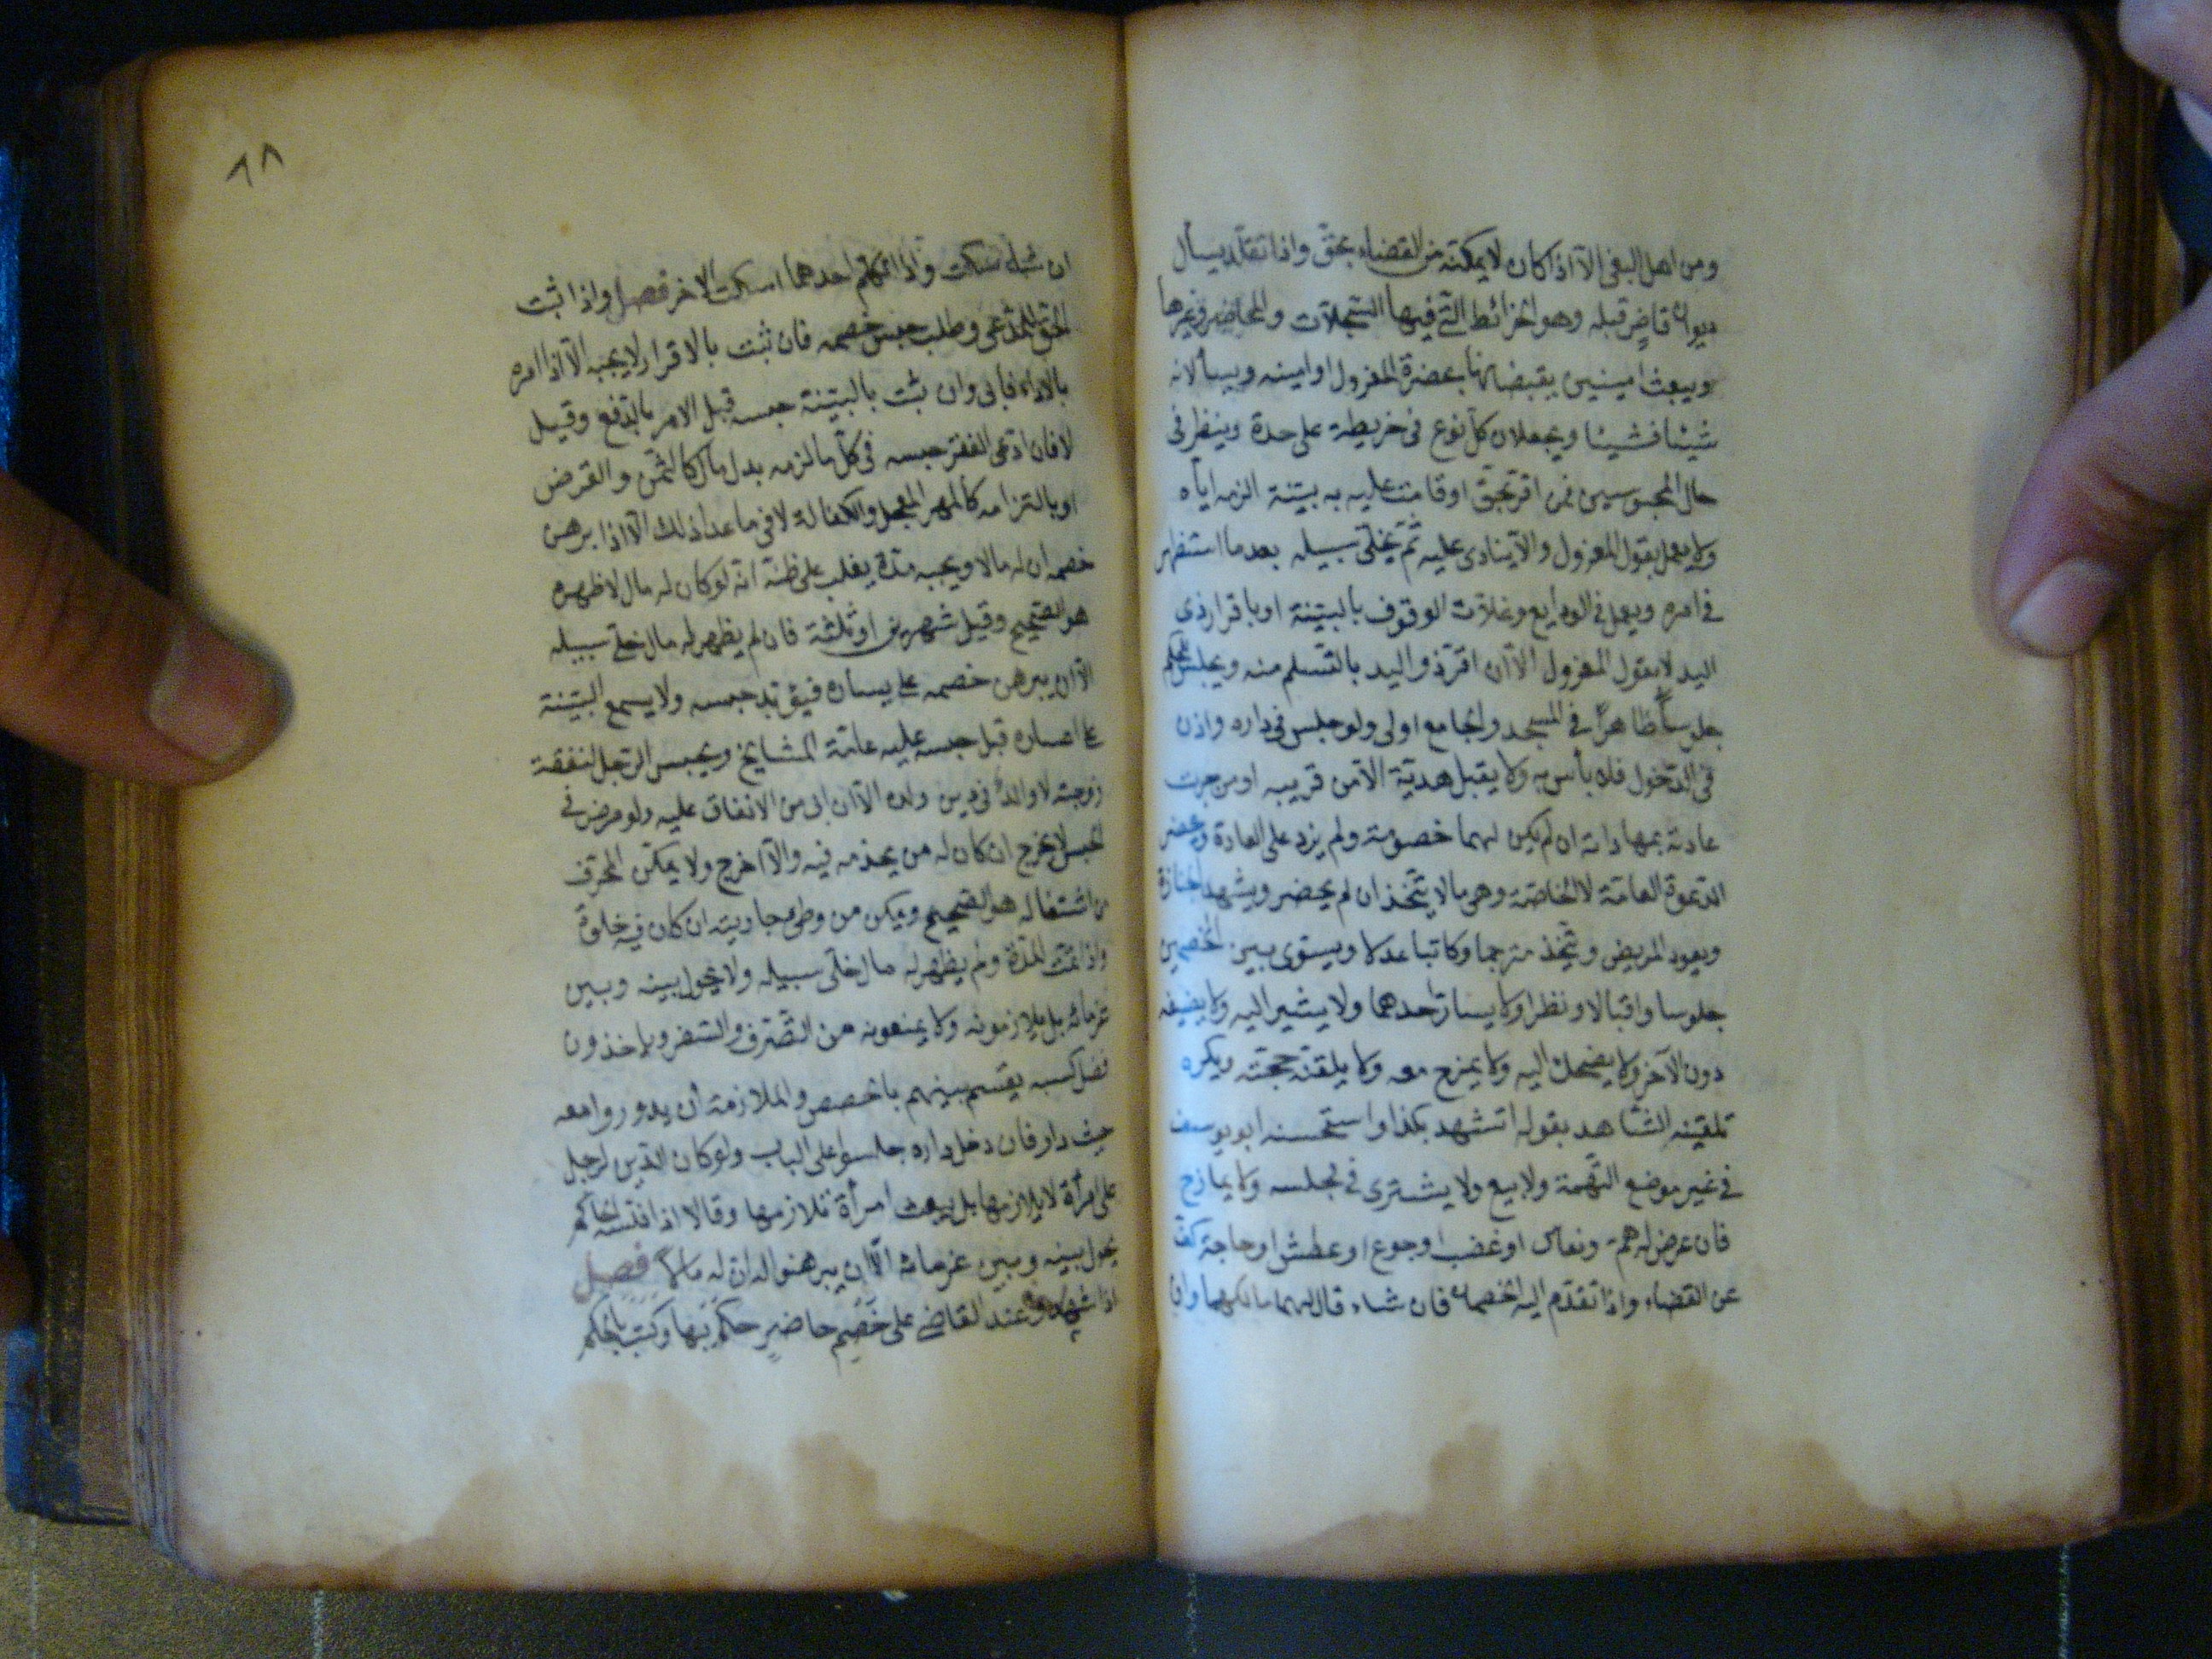 ومن اهل البغى الا اذا كان لا يمكنه من القضاء بحق واذا تقلد يسأل
ديوان قاض قبله وهو الخرائط التى فيها السجلات والمحاضر وغيرها
ويبعث امينين يقبضانها بحضرة المعزول او امينه ويسألانه
شيئا فشيئا ويجعلان كل نوع فى خريطة على حدة وينظر فى
حال المحبوسين فمن اقر بحق او قامت عليه به بينة الزمه اياه
ولا يعمل بقول المعزول والا ينادى عليه ثم يخلى سبيله بعد ما استظهر
فى امره ويعمل فى الودايع وغلات الوقوف بالبينة او باقرار ذى
اليد لا بقول المعزول الا ان اقر ذو اليد بالتسلم منه ويجلس للحكم
جلوسا ظاهرا فى المسجد والجامع اولى ولو جلس فى داره واذن
فى الدخول فلا بأس به ولا يقبل هدية الا من قريبه او من جرت
عادته بمهاداته ان لم يكن لهما خصومة ولم يزد على العادة ويحضر
الدعوة العامة لا الخاصة وهى ما لا يتخذ ان لم يحضر ويشهد الجنازة
ويعود المريض ويتخذ مترجما وكاتبا عدلا ويسوى بين الخصمين
جلوسا واقبالا ونظرا ولا يسار احدهما ولا يشير اليه ولا يضيفه
دون الآخر ولا يضحك اليه ولا يمزح معه ولا يلقنه حجته ويكره
تلقينه الشاهد بقوله اتشهد بكذا واستحسنه ابو يوسف
فى غير موضع التهمة ولا يبيع ولا يشترى فى مجلسه ولا يمازح
فان عرض له هم ونعاس او غضب او جوع او عطش او حاجة كف
عن القضاء واذا تقدم اليه الخصمان فان شاء قال لهما مالكهما وان
٦٨
ان شاء سكت واذا تكلم احدهما اسكت الاخر فصل واذا ثبت
الحق للمدعى وطلب حبس خصمه فان ثبت بالاقرار لا يحبسه الا اذا امره
بالاداء فأبى وان ثبت بالبينة حبسه قبل الامر بالدفع وقيل
لا فان ادعى الفقر حبسه فى كل ما لزمه بدل مال كالثمن والقرض
او بالتزامه كالمهر المعجل والكفالة لا فى ما عدا ذلك الا اذا برهن
خصمه ان له مالا ويحبسه مدة يغلب على ظنه انه لو كان له مال لاظهره
هو الصحيح وقيل شهرين او ثلثة فان لم يظهر له مال خلى سبيله
الا ان يبرهن خصمه على يساره فيؤبد حبسه ولا يسمع البينة
على اعساره قبل حبسه عليه عامة المشايخ ويحبس الرجل لنفقة
زوجته لا والد فى دين ولده الا ان ابى من الانفاق عليه ولو مرض فى
الحبس لا يخرج ان كان له من يخدمه فيه والا اخرج ولا يمكن المحترف
من اشتغاله هو الصحيح ويمكن من وطئ جاريته ان كان فيه خلوة
واذا تمت المدة ولم يظهر له مال خلى سبيله ولا يحول بينه وبين
غرمائه بل يلازمونه ولا يمنعونه من التصرف والسفر ويأخذون
فضل كسبه يقسم بينهم بالحصص والملازمة ان يدوروا معه
حيث دار فان دخل داره جلسوا على الباب ولو كان الدين لرجل
على امرأة لا يلازمها بل يبعث امرأة تلازمها وقالا اذا افلسه الحاكم
يحول بينه وبين غرمائه الا ان يبرهنوا ان له مالا فصل
اذا شهدوا عند القاضى على خصم حاضر حكم بها وكتب بالحكم